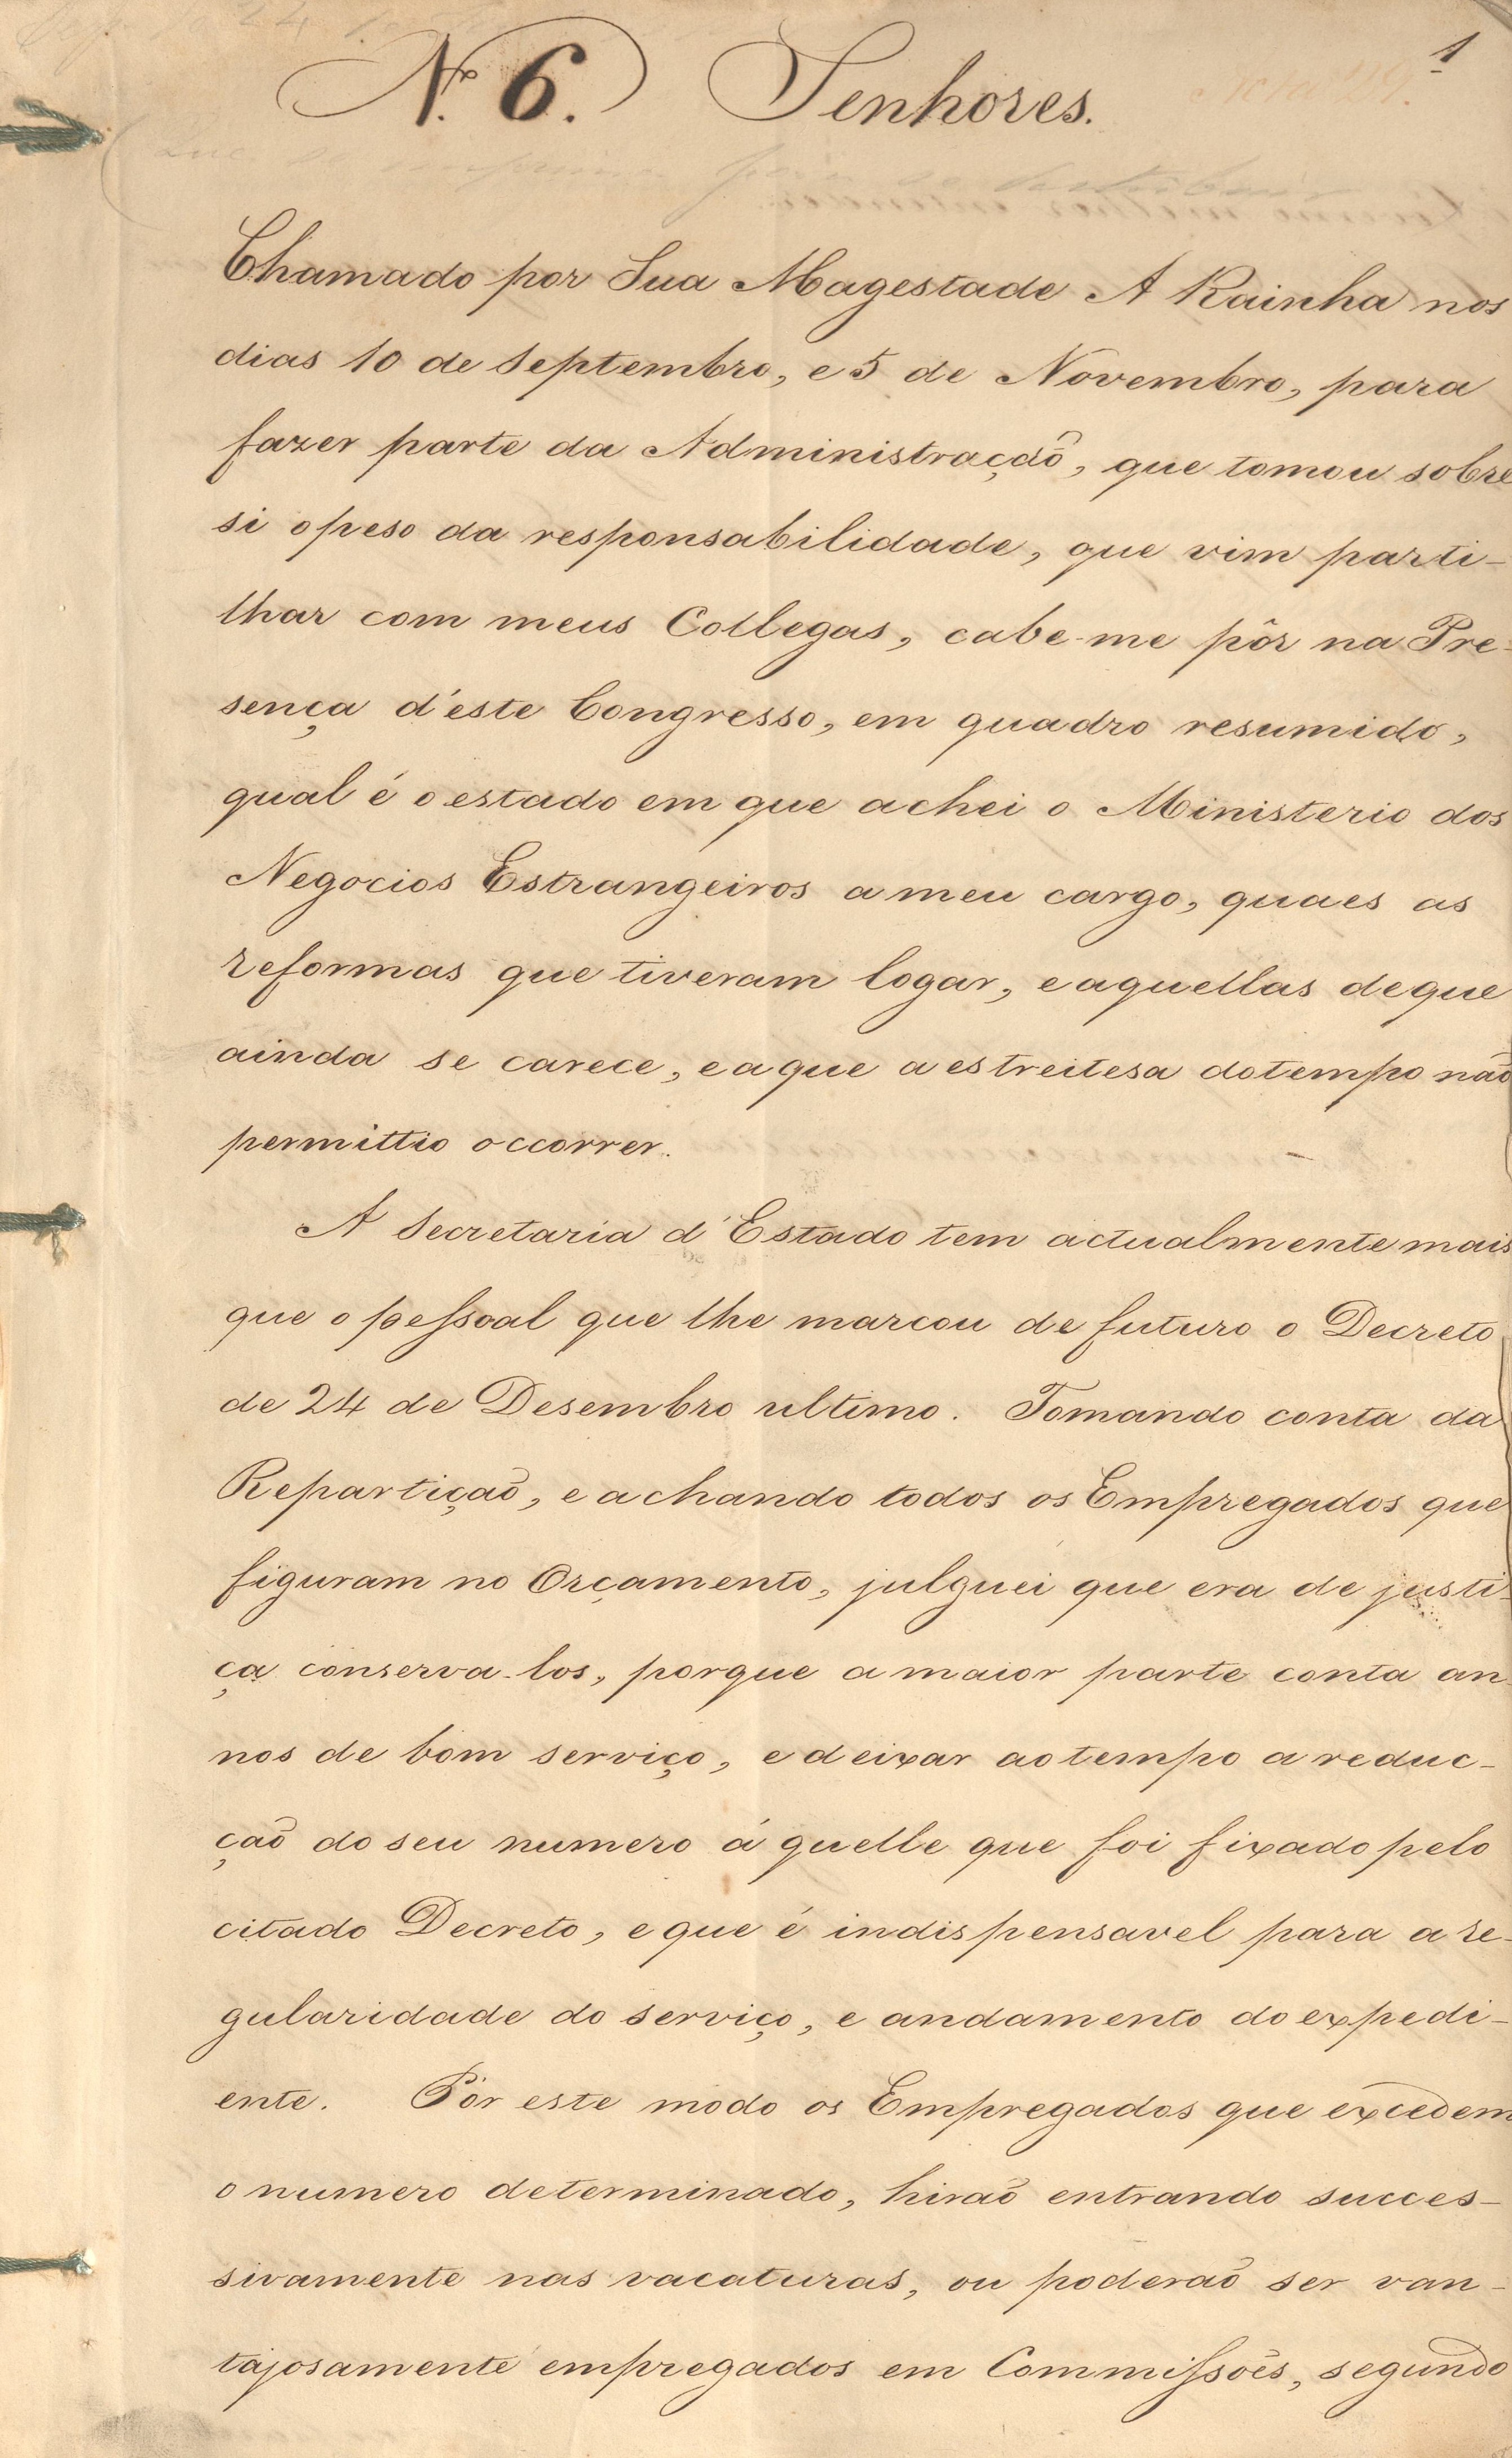 N.º 6. Senhores.
1
Chamado por Sua Magestade A Rainha nos
dias 10 de Septembro, e 5 de Novembro, para
fazer parte da Administração, que tomou sobre
si o peso da responsabilidade, que vim parti-
lhar com meus Collegas, cabe-me pôr na Pre-
sença d'este Congresso, em quadro resumido,
qual é o estado em que achei o Ministerio dos
Negocios Estrangeiros a meu cargo, quaes as
reformas que tiveram logar, e aquellas de que
ainda se carece, e a que a estreitesa do tempo não
permittio occorrer.
A Secretaria d'Estado tem actualmente mais
que o pessoal que lhe marcou de futuro o Decreto
de 24 de Desembro ultimo. Tomando conta da
Repartição, e achando todos os Empregados que
figuram no Orçamento, julguei que era de justi-
ça conserva-los, porque a maior parte conta an-
nos de bom serviço, e deixar ao tempo a reduc-
ção do seu numero á quelle que foi fixado pelo
citado Decreto, e que é indispensavel para a re-
gularidade do serviço, e andamento do expedi-
ente. Pòr este modo os Empregados que excedem
o numero determinado, hirão entrando succes-
sivamente nas vacaturas, ou poderão ser van-
tajosamente empregados em Commissões, segundo